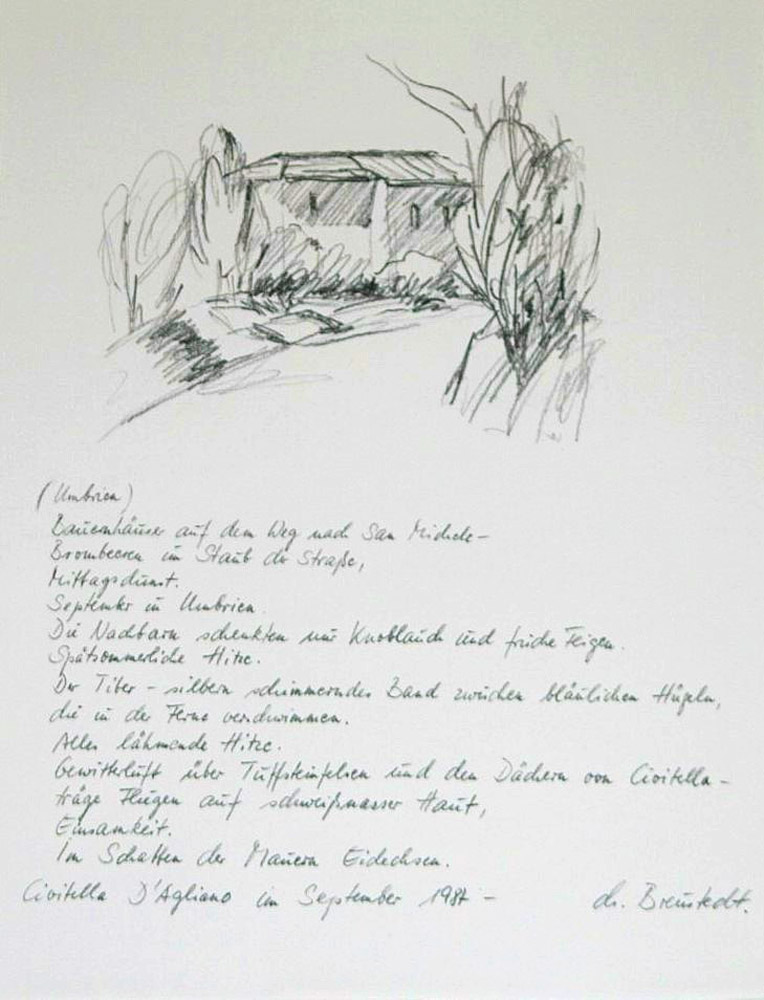 (Umbrien)
Bauernhäuser auf dem Weg nach San Michele-
Brombeeren im Staub der Straße,
Mittagsdunst.
September in Umbrien.
Die Nachbarn schenkten mir Knoblauch und frische Feigen.
Spätsommerliche Hitze.
Der Tiber - silbern schimmerndes Band zwischen bläulichen Hügeln,
die in der Ferne verschwimmen.
Alles lähmende Hitze.
Gewitterluft über Tuffsteinfelsen und den Dächern von Civitella -
träge Fliegen auf schweißnasser Haut,
Einsamkeit.
Im Schatten der Mauern Eidechsen.
Civitella D'Agliano im September -